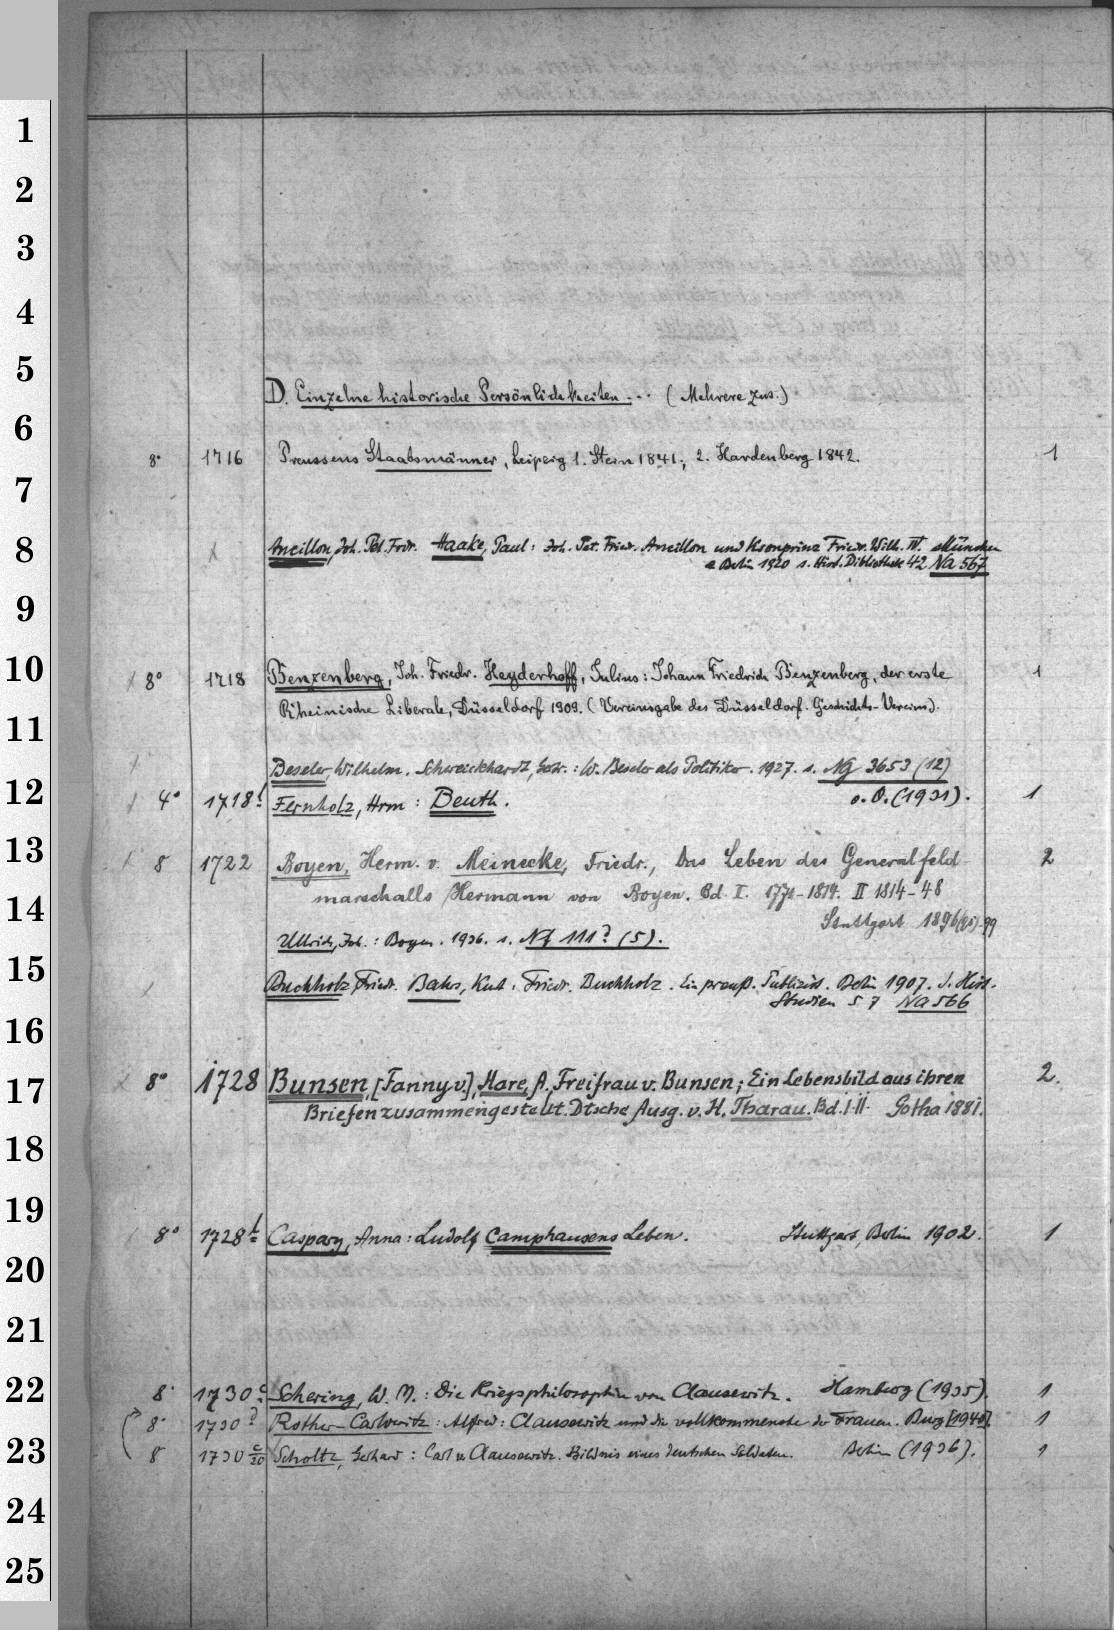 1
2
3
4
5
D. Einzelne historische Persönlichkeiten... (Mehrere zus.)
6
8° 1716 Preussens Staatsmänner, Leipzig 1. Stein 1841; 2. Hardenberg 1842. 1
7
8 Ancillon, Joh. Pet. Frdr. Haake, Paul: Joh. Pet. Friedr. Ancillon und Kronprinz Friedr. Wilh. IV. München
e Berlin 1920 s. Hist. Bibliothek 42 Na 567
9
10 8° 1718 Benzenberg, Joh. Friedr. Heyderhoff, Julius: Johann Friedrich Benzenberg, der erste 1
Rheinische Liberale, Düsseldorf 1909. (Vereinsgabe des Düsseldorf. Geschichts-Vereins).
11
Beseler, Wilhelm. Schweickhardt, : W. Beseler als Politiker. 1927. s. Ng 3653 (12)
12 4° 1718 Fernholz, Hrm: Beuth. o. O. (1931). 1
13 8 1722 Boyen, Herm. v. Meinecke, Friedr., Das Leben des Generalfeld- 2
marschalls Hermann von Boyen. Bd I. 1771-1814. II 1814-48
14
Stuttgart 1896 99
Ullrich, Joh.: Boyen. 1936. s. (5).
15 Buchholz, Friedr. Bahrs, Kurt: Friedr. Buchholz. Ein preuß. Publizist. Berlin 1907. s. Hist.
Studien 57 Na 566
16
17 8° 1728 Bunsen, [Fanny v.], Hare, A. Freifrau v. Bunsen; Ein Lebensbild aus ihren 2.
Briefen zusammengestellt. Dtsche Ausg. v. H. Tharau. Bd. I. II. Gotha 1881.
18
19
8° 1728 Caspary, Anna: Ludolf Camphausens Leben. Stuttgart, Berlin 1902. 1
20
21
22 8° 1730 Schering, W. M.: Die Kriegsphilosophie von Clausewitz. Hamburg (1935). 1
8° 1730 Rother-Carlowitz: Alfred: Clausewitz und die vollkommenste der Frauen. Burg [1940]. 1
23 8° 1730 Scholtz, Gerhard: Carl v. Clausewitz. Bildnis eines deutschen Soldaten. Berlin (1936). 1
24
25